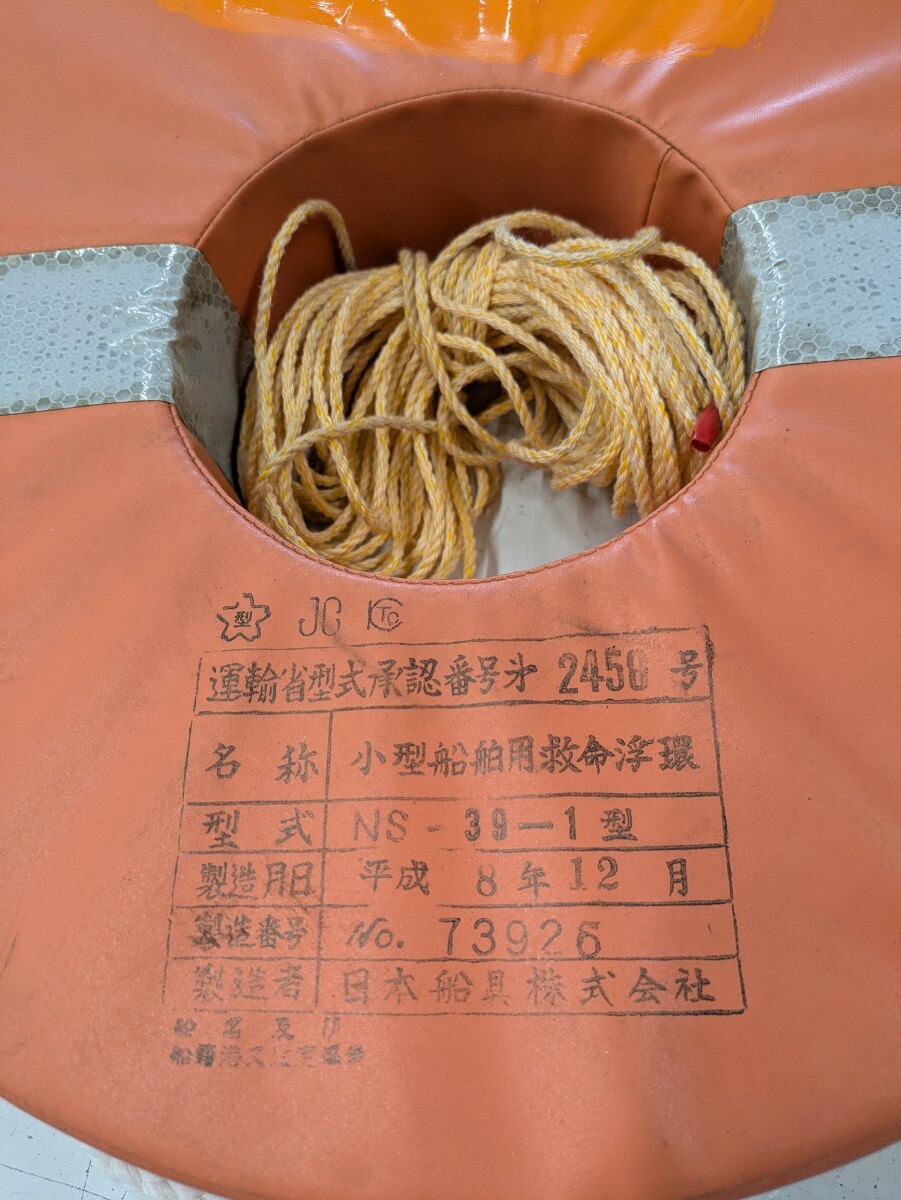 型 JC TC
運輸省型式承認番号第 2450 号
名称 小型船舶用救命浮環
型式 NS-39-1型
製造月日 平成 8年12月
製造番号 No. 73926
製造者 日本船具株式会社
船名及び